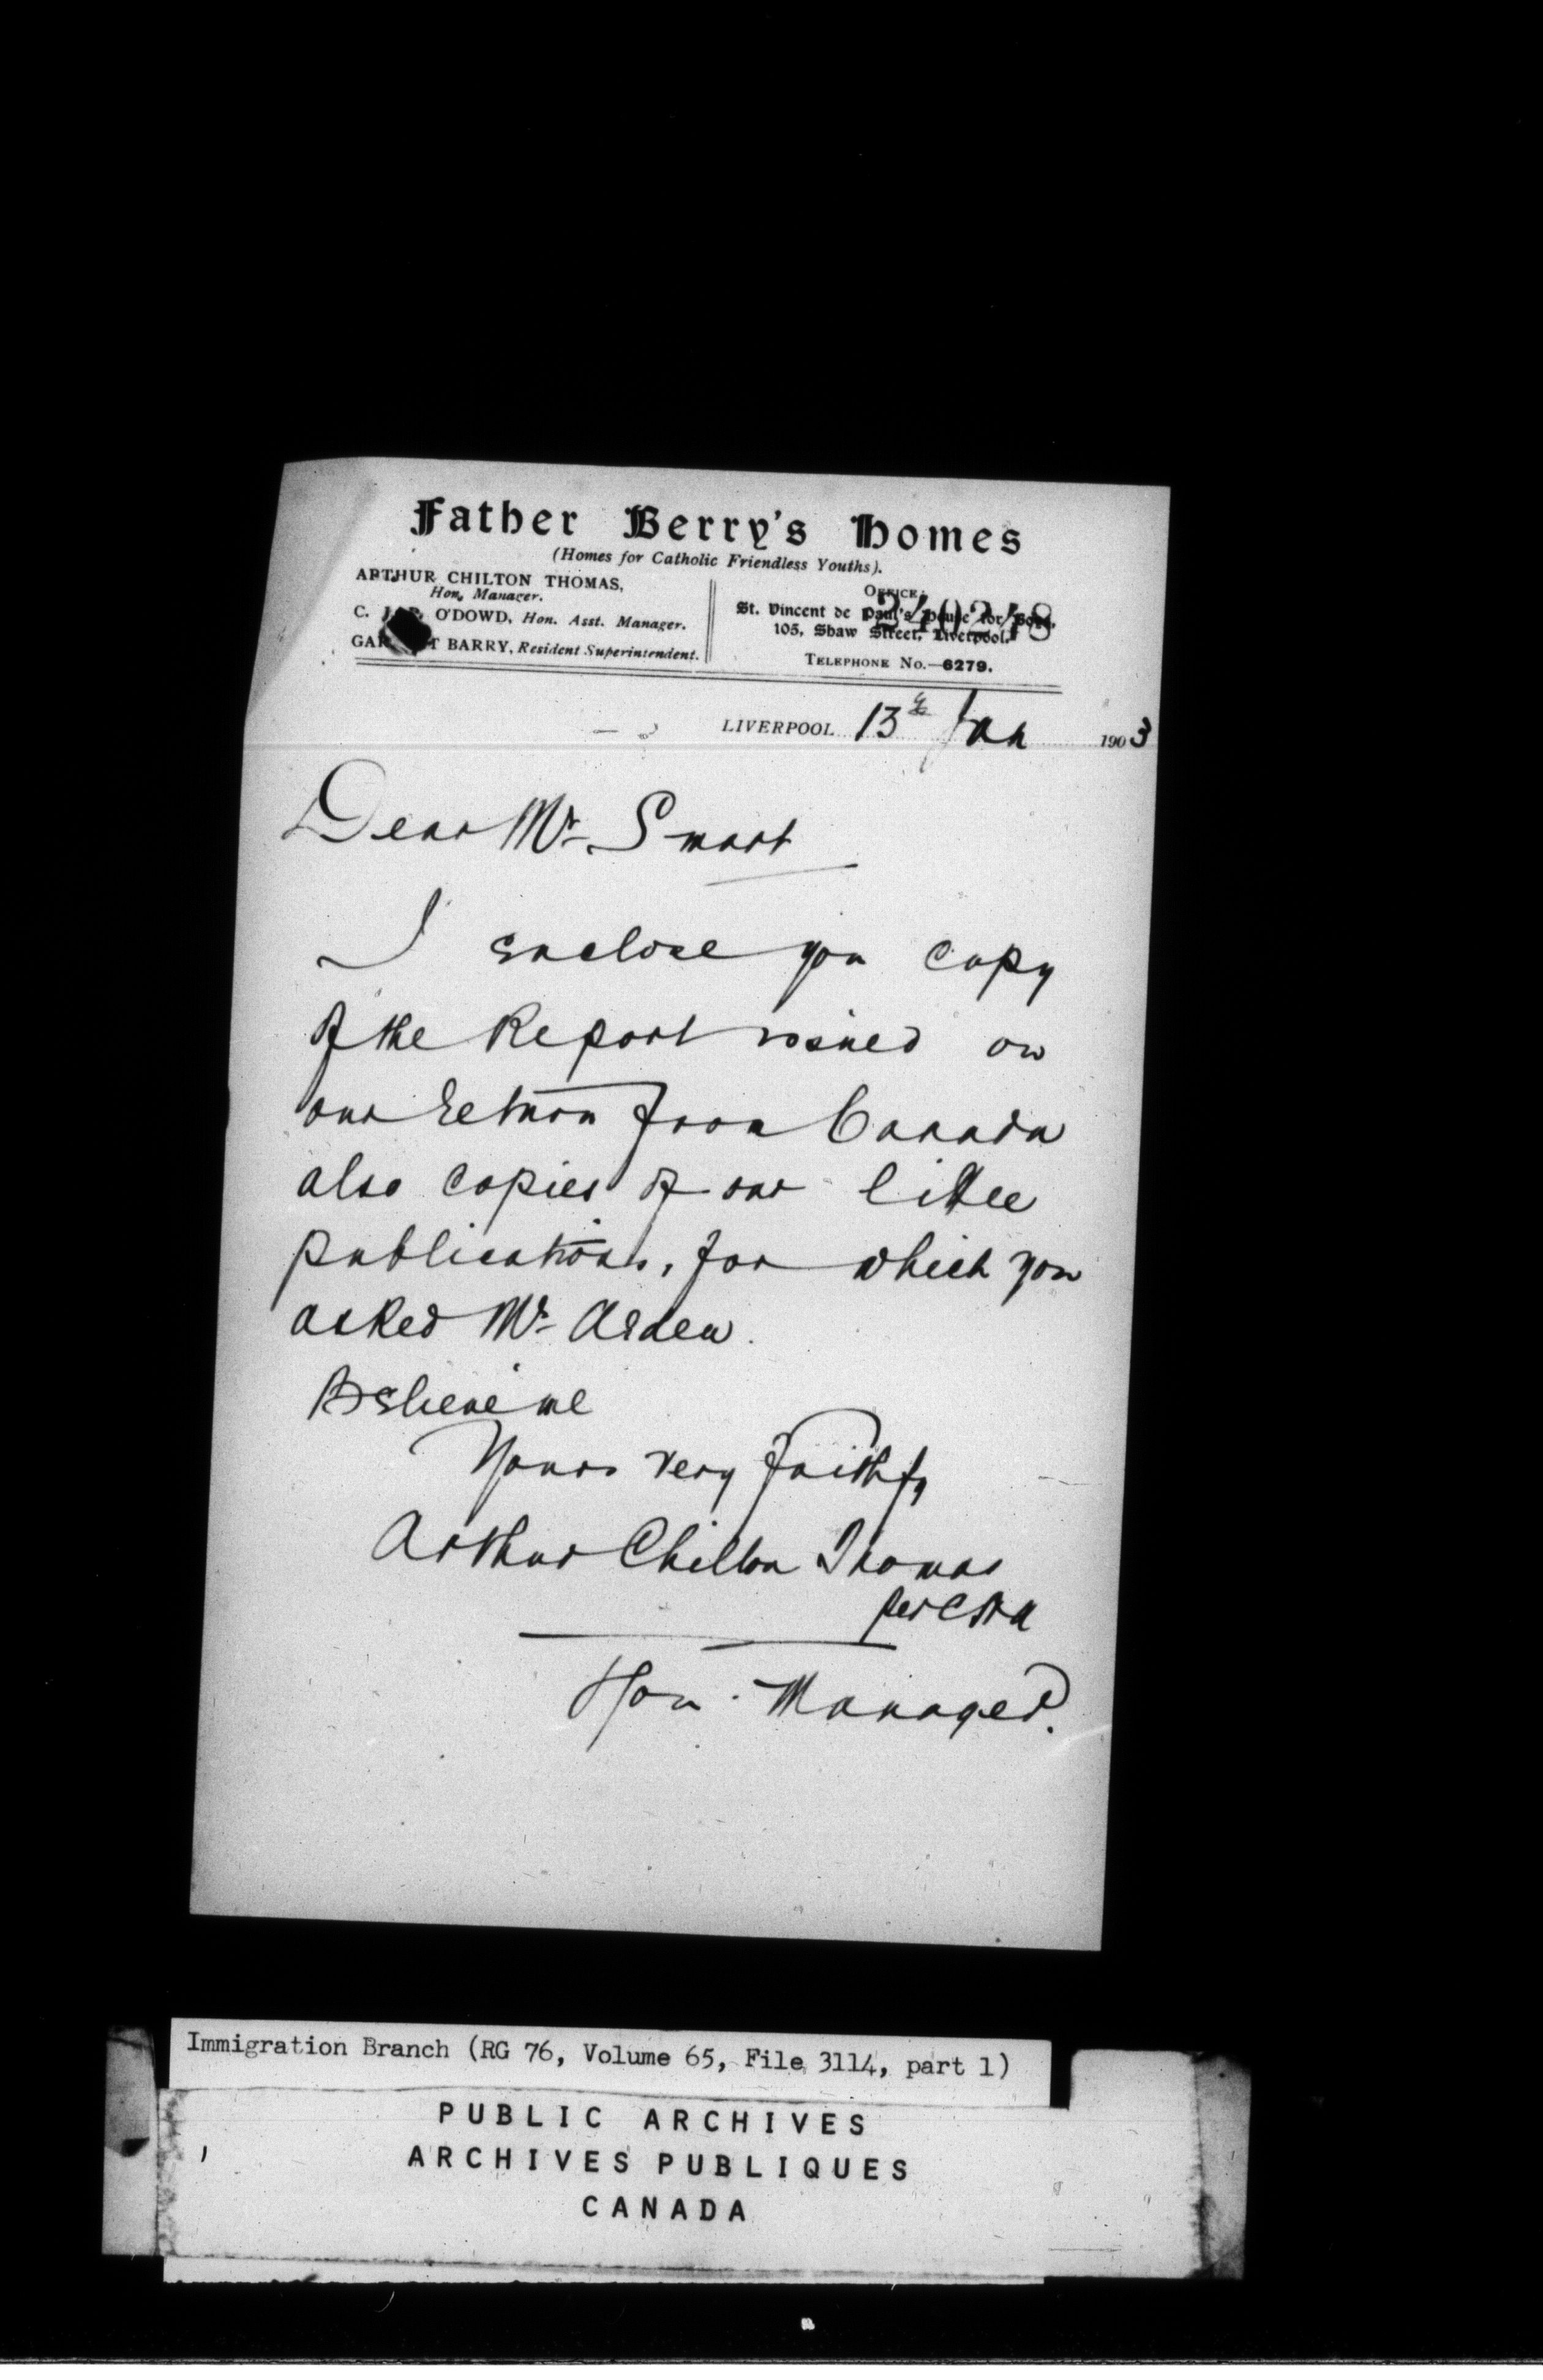 Father Berry's Homes
(Homes for Catholic Friendless Youths).
ARTHUR CHILTON THOMAS,
Hon. Manager.
C. O'DOWD, Hon. Asst. Manager.
BARRY, Resident Superintendent.
OFFICE:
St. Vincent de Paul's House for Boys,
105, Shaw Street, Liverpool.
240248
TELEPHONE No.—6279.
LIVERPOOL 13th Jan 1903
Dear Mr Smart
I enclose you copy
of the Report issued on
our return from Canada
also copies of our little
publications, for which you
asked Mr Arden.
Believe me
Yours very faithfy
Arthur Chilton Thomas
per
Hon. Manager.
Immigration Branch (RG 76, Volume 65, File 3114, part 1)
PUBLIC ARCHIVES
ARCHIVES PUBLIQUES
CANADA